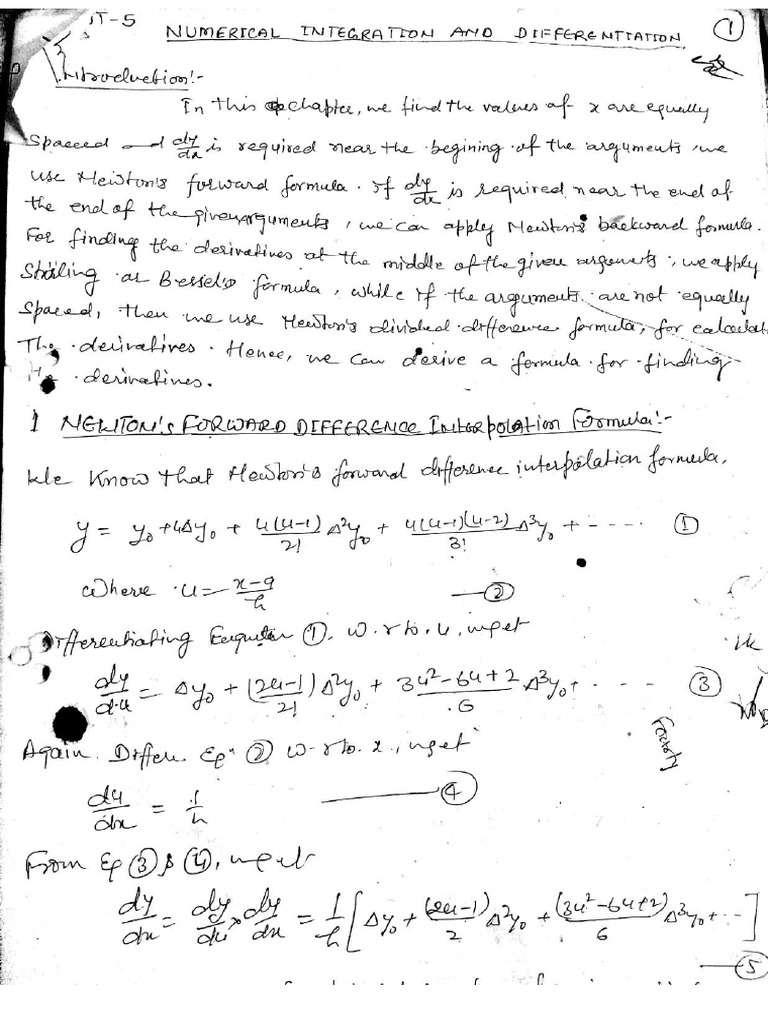 IT-5 NUMERICAL INTEGRATION AND DIFFERENTIATION ①
Introduction:-
In this chapter, we find the values of x are equally
Spaceed and dy/dx is required near the begining of the arguments, we
use Newton's forward formula. If dy/dx is required near the end of
the end of the given arguments, we can apply Newton's backward formula.
For finding the derivatives at the middle of the given arguments, we apply
Stirling or Bessel's formula, while if the arguments are not equally
Spaced, then we use Newton's divided difference formula, for calculat
The derivatives. Hence, we can derive a formula for finding
the derivatives.
1 NEWTON'S FORWARD DIFFERENCE Interpolation Formula:-
We Know that Newton's forward difference interpolation formula,
y = y₀ + uΔy₀ + u(u-1)/2! Δ²y₀ + u(u-1)(u-2)/3! Δ³y₀ + ---- ①
where u = x-a/h —②
Differentiating Equation ①, w.r.to. u, we get
dy/du = Δy₀ + (2u-1)/2! Δ²y₀ + 3u²-6u+2/6 Δ³y₀ + ---- ③
Factory
Again Differn. Eqⁿ ② w.r.to. x., we get
du/dx = 1/h —④
From Eq ③ & ④, we get
dy/dx = dy/du × dy/dx = 1/h [Δy₀ + (2u-1)/2 Δ²y₀ + (3u²-6u+2)/6 Δ³y₀ + --]
—⑤